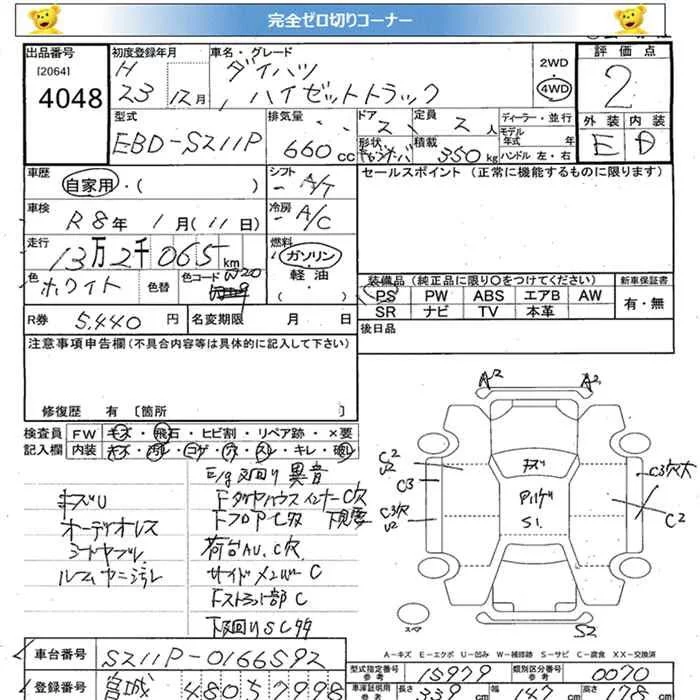 完全ゼロ切りコーナー
出品番号 初度登録年月 車名・グレード 評価点
[2064] H ダイハツ 2WD
4048 23 12月 ハイゼットトラック 4WD 2
型式 排気量 ドア 定員 ディーラー・並行 外装 内装
EBD-S211P 660cc 2 2人 モデル年式 年 E D
形状 積載 350kg ハンドル 左・右
車歴 自家用・( ) シフト - A/T セールスポイント (正常に機能するものに限ります)
車検 R8年 1月(11日) 冷房 - A/C
走行 13万2千065km 燃料 ガソリン
色 ホワイト 色替 色コード W20 軽油 ・( )
装備品(純正品に限り〇をつけてください) 新車保証書
PS PW ABS エアB AW 有・無
SR ナビ TV 本革
R券 5,440円 名変期限 月 日 後日品
注意事項申告欄(不具合内容等は具体的に記入して下さい)
修復歴 有 〔箇所 〕
検査員 FW キズ・飛石・ヒビ割・リペア跡・×要
記入欄 内装 キズ・汚レ・コゲ・穴・スレ・キレ・破レ
E/g廻り異音
キズU
オーディオレス
ルームヤニ汚レ
荷台AU、C穴
サイドメンバーC
下廻りSC
A2 A2
C2 U2 C3 C3穴 U2
C3穴大 C2
S1
S2
スペア
A-キズ E-エクボ U-凹み W-補修跡 S-サビ C-腐食 XX-交換済
車台番号 S211P-0166592 型式指定番号 参考 15979 類別区分番号 参考 0070
登録番号 宮城 480 5 7998 車庫証明用 参考 長さ 339cm 幅 147cm 高さ 178cm